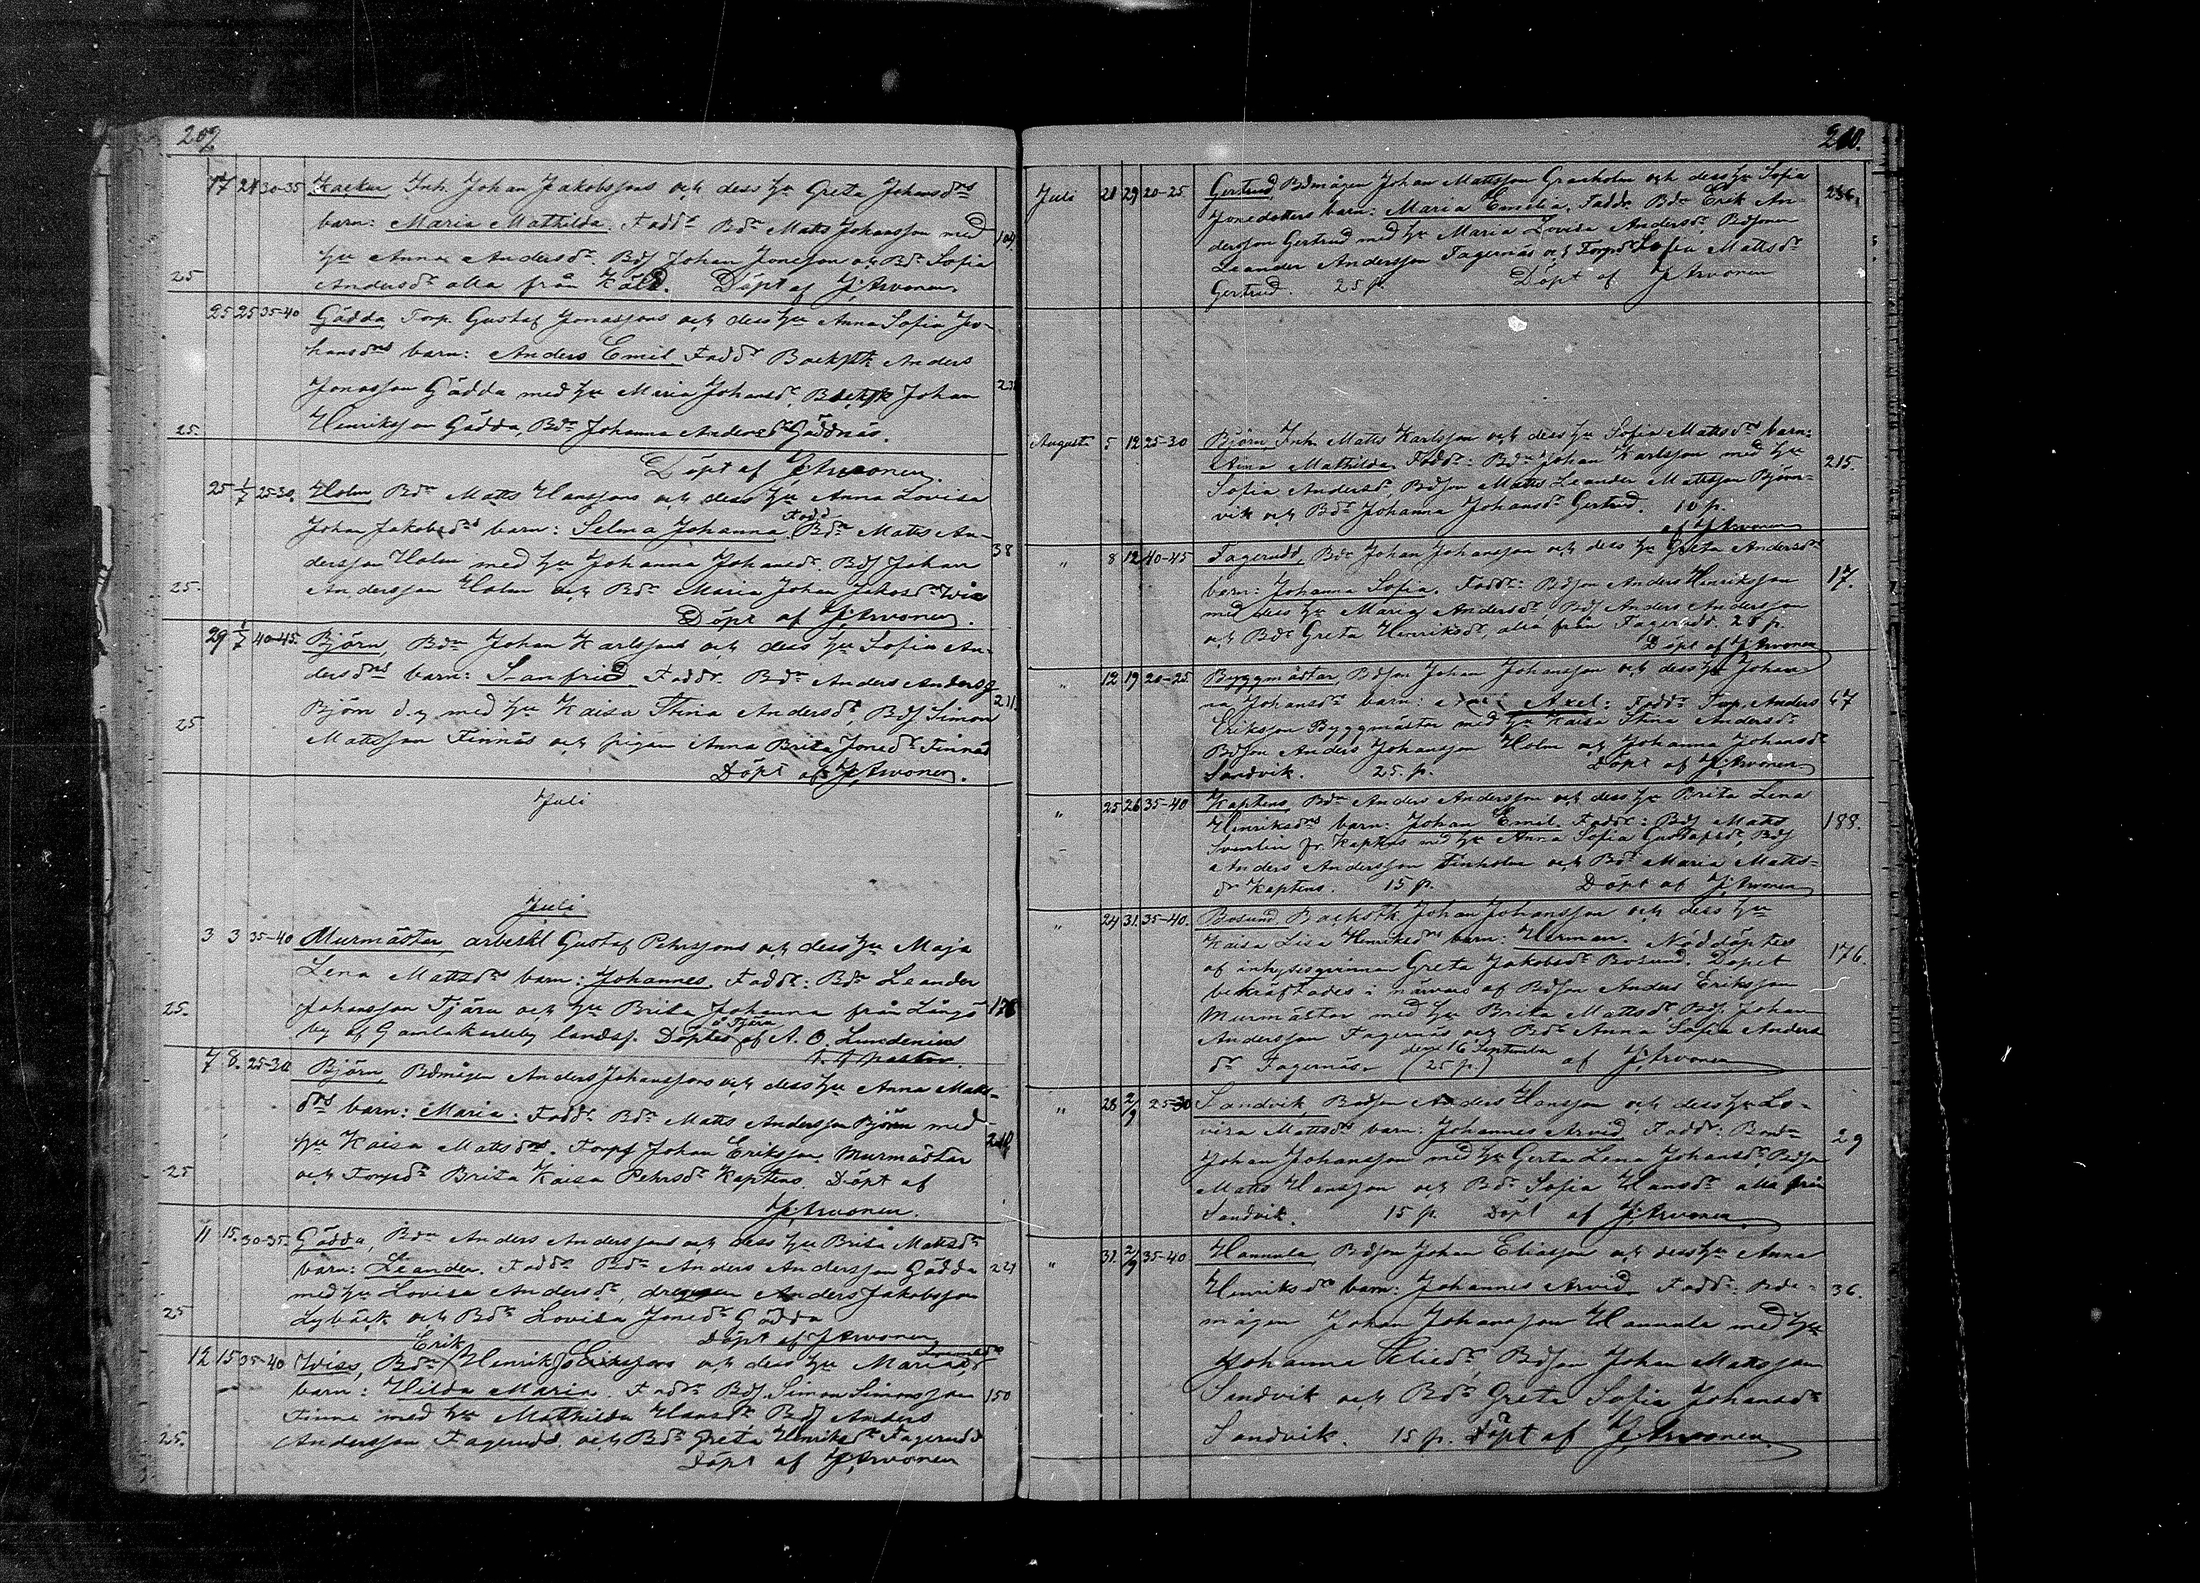 202
17 21 30-35 Kacker, Inh. Johan Jakobssons och dess hu Greta Johansdrs
barn: Maria Mathilda. Faddr Bdn Matts Johansson med 104.
hu Anna Andersdr. Bdj Johan Jonsson och Bdr Sofia
25 Andersdr alla från Döpt af J. Arvonen.
25 25 35-40 Gädda Torp. Gustaf Jonassons och dess hu Anna Sofia Jo-
hansdrs barn: Anders Emil. Faddr Anders
Jonasson Gädda med hu Maria Johansdr, Johan
25. Henriksson Gädda, Bdr Johanna Andersdr Gäddnäs.
Döpt af J. Arvonen.
25 1/7 25-30. Holm Bdn Matts Hanssons och dess hu Anna Lovisa
Johan Jakobsdrs barn: Selma Johanna. Fadd Bdn Matts An- 38
dersson Holm med hu Johanna Johansdr. Bdj Johan
25. Andersson Holm och Bdr Maria Johan Jakobsdr Wiis
Döpt af J. Arvonen.
29 1/7 40-45. Björn, Bdn Johan Karlssons och dess hu Sofia An-
dersdrs barn: Sanfrid. Faddr. Bdn Anders Anderss 211.
25 Björn d.y. med hu Kaisa Stina Andersdr, Bdj Simon
Mattsson Finnäs och pigan Anna Brita Jonsdr Finnäs
Döpt af J. Arvonen.
Juli
Juli
3 3 35-40 Murmästar, arbeskl Gustaf Pehrssons och dess hu Maja
Lena Mattsdrs barn: Johannes. Faddr: Bdn Leander
25. Johansson Tjäru och hu Brita Johanna från Långö
by af Gamlakarleby landsf. Döptes af A. O. Lundenius
7 8. 25-30. Björn, Bdmågen Anders Johanssons och dess hu Anna Matts-
drs barn: Maria. Faddr. Bdn Matts Andersson Björn med
hu Kaisa Mattsdrs. Torps Johan Eriksson Murmästar
25 och Torpsdr Brita Kaisa Pehrsdr Kaptens. Döpt af
J. Arvonen.
11 15. 30-35. Gädda, Bdn Anders Anderssons och dess hu Brita Mattsdr
barn: Leander. Faddr Bdn Anders Andersson Gädda 221
med hu Lovisa Andersdr, drengen Anders Jakobsson
25 Lybäck och Bdr Lovisa Jonsdr Gädda
Döpt af J. Arvonen
Erik
12 15 35-40 Wiss, Bdn Henrik Erikssons och dess hu Maria
barn: Hilda Maria. Faddr Bdj Simon Simonsson 150
Finne med hu Mathilda Hansdr, Bdj Anders
25. Andersson Fagerudd och Bdr Greta Henriksdr Fagerudd
Döpt af J. Arvonen
210.
Juli 21 29 20-25 Gertrud, Bdmågen Johan Mattsson Granholm och dess hu Sofia
Jonsdotters barn: Maria Emelia. Faddr. Bdn Erik An-
dersson Gertrud med hu Maria Lovisa Andersdr, Bdsonen
Leander Andersson Fagernäs och Torpdr Sofia Mattsdr
Gertrud. 25 p. Döpt af J. Arvonen
Augusti 5 12 25-30 Björn, Inh. Matts Karlsson och dess hu Sofia Mattsdrs barn:
Aina Mathilda. Faddr: Bdn Johan Karlsson med hu 215.
Sofia Andersdr, Bdson Matts Leander Mattsson Björn-
vik och Bdr Johanna Johansdr Gertrud. 10 p.
af J. Arvonen
" 8 12 40-45 Fagerudd, Bdn Johan Johansson och dess hu Greta Andersdr
barn: Johanna Sofia. Faddr: Bdson Anders Henriksson 17.
med dess hu Maria Andersdr Bdj Anders Andersson
och Bdr Greta Henriksdr, alla från Fagerudd. 25 p.
Döpt af J. Arvonen
" 12 19 20-25 Byggmästar, Bdson Johan Johansson och dess hu Johan-
na Johansdr barn: Axel: Faddr Torp. Anders 67
Eriksson Byggmästar med hu Kaisa Stina Andersdr
Bdson Anders Johansson Holm och Johanna Johansdr
Sandvik. 25. p. Döpt af J. Arvonen
" 25 26 35-40 Kaptens, Bdn Anders Andersson och dess hu Brita Lena
Henriksdrs barn: Johan Emil. Faddr: Bdj Matts 188.
Kaptens med hu Anna Sofia Gustafsdr, Bdj
Anders Andersson Finholm och Bdr Maria Matts-
dr Kaptens. 15 p. Döpt af J. Arvonen
" 24 31. 35-40. Bosund Johan Johansson och dess hu
Kaisa Lisa Henriksdrs barn: Herman. Nöddöptes
af inhysesqvinnan Greta Jakobsdr Bosund. Dopet 176.
bekräftades i närvaro af Bdson Anders Eriksson
Murmästar med hu Brita Mattsdr Bdj. Johan
Andersson Fagernäs och Bdr Anna Sofia Anders
den 16 September
dr Fagernäs. (25 p.) af J. Arvonen
" 28 2/9 25-30 Sandvik, Bodson Anders Hansson och dess hu Lo-
visa Mattsdrs barn: Johannes Arvid. Faddr: Bondn 29
Johan Johansson med hu Gerta Lena Johansdr, Bdson
Matts Hansson och Bdr Sofia Hansdr alla från
Sandvik. 15 p. Döpt af J. Arvonen.
" 31. 2/9 35-40 Hannula, Bdson Johan Eliasson och dess hu Anna
Henriksdrs barn: Johannes Arvid. Faddr: Bde- 36.
mågen Johan Johansson Hannula med hu
Johanna Eliedr, Bdson Johan Mattsson
Sandvik och Bdr Greta Sofia Johansdr
Sandvik. 15 p. Döpt af J. Arvonen.